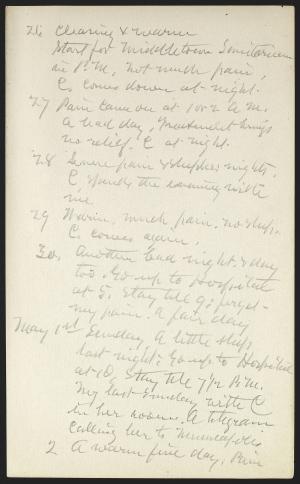 26 Clearing & warm
Start for Middletown Sanitarium
in P.M., not much pain,
C. comes down at night.
27 Pain came on at 1 or 2 A.M.
A bad day, Treatment brings
no relief. C at night.
28 Severe pain & sleepless nights.
C. spends the evening with
me.
29 Warm, much pain, no sleep.
C. comes again.
30. Another bad night & day
too. Go up to Hospital
at 5. Stay till 9; forget
my pain. A fair day
May 1st Sunday. A little sleep
last night; Go up to Hospital
at 10, Stay till 7½ P.M.
My last Sunday with C
in her room. A telegram
calling her to Minneapolis
2 A warm fine day. Pain